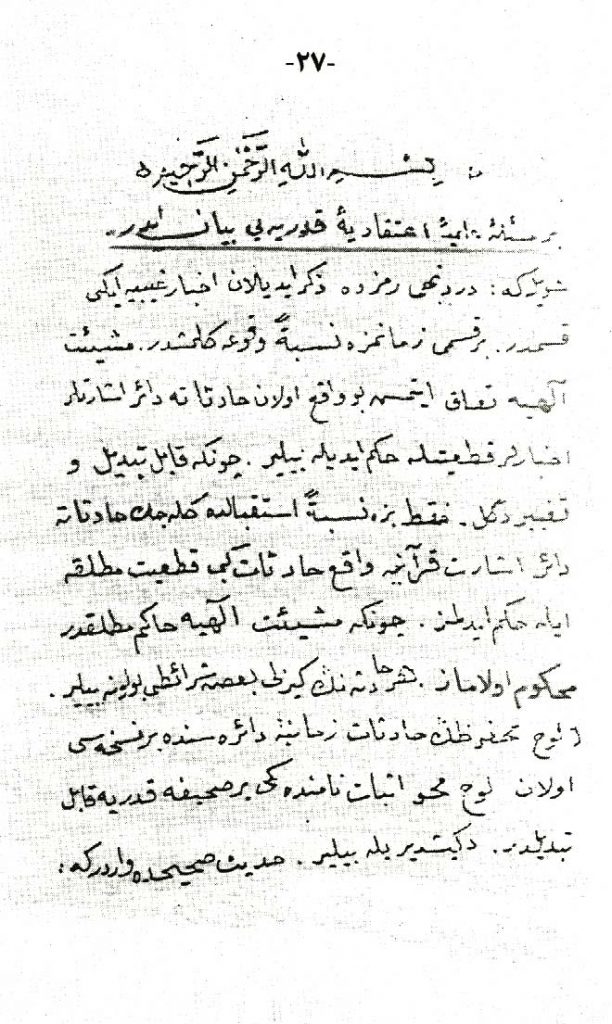 -٢٧-
بِسْمِ اللهِ الرَّحْمٰنِ الرَّحِيمِ
بر مسئلهٔ مهمهٔ اعتقاديهٔ قدريه يی بيان ايدر.
شويله كه: دردنجی رمزده ذكر ايديلان اخبار غيبيه ايكی
قسمدر. بر قسمی زمانمزه نسبةً وقوعه كلمشدر. مشيئت
آلهيه تعلق ايتمش بو واقع اولان حادثاته دائر اشارتلر
اخبارلر قطعيتله حكم ايديله بيلير. چونكه قابل تبديل و
تغيير دگل. فقط بزه نسبةً استقبالده كله جك حادثاته
دائر اشارت قرآنيه واقع حادثات كبی قطعيت مطلقه
ايله حكم ايدلمز. چونكه مشيئت آلهيه حاكم مطلقدر
محكوم اولاماز. هر حادثه نڭ كيزلی بعض شرائطی بولونه بيلير.
لوح محفوظڭ حادثات زمانيه دائره سنده بر نسخه سی
اولان لوح محو اثبات نامنده كی بر صحيفه قدريه قابل
تبديلدر. دكيشديريله بيلير. حديث صحيحده واردركه: